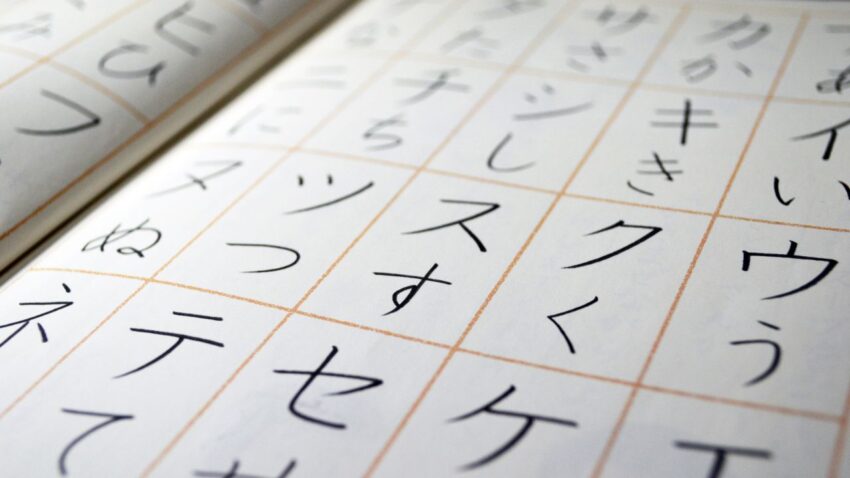 あ
イ
い
ウ
う
エ
カ
か
キ
き
ク
く
ケ
サ
さ
シ
し
ス
す
セ
せ
タ
た
チ
ち
ツ
つ
テ
て
ニ
に
ヌ
ぬ
ネ
ヒ
ひ
フ